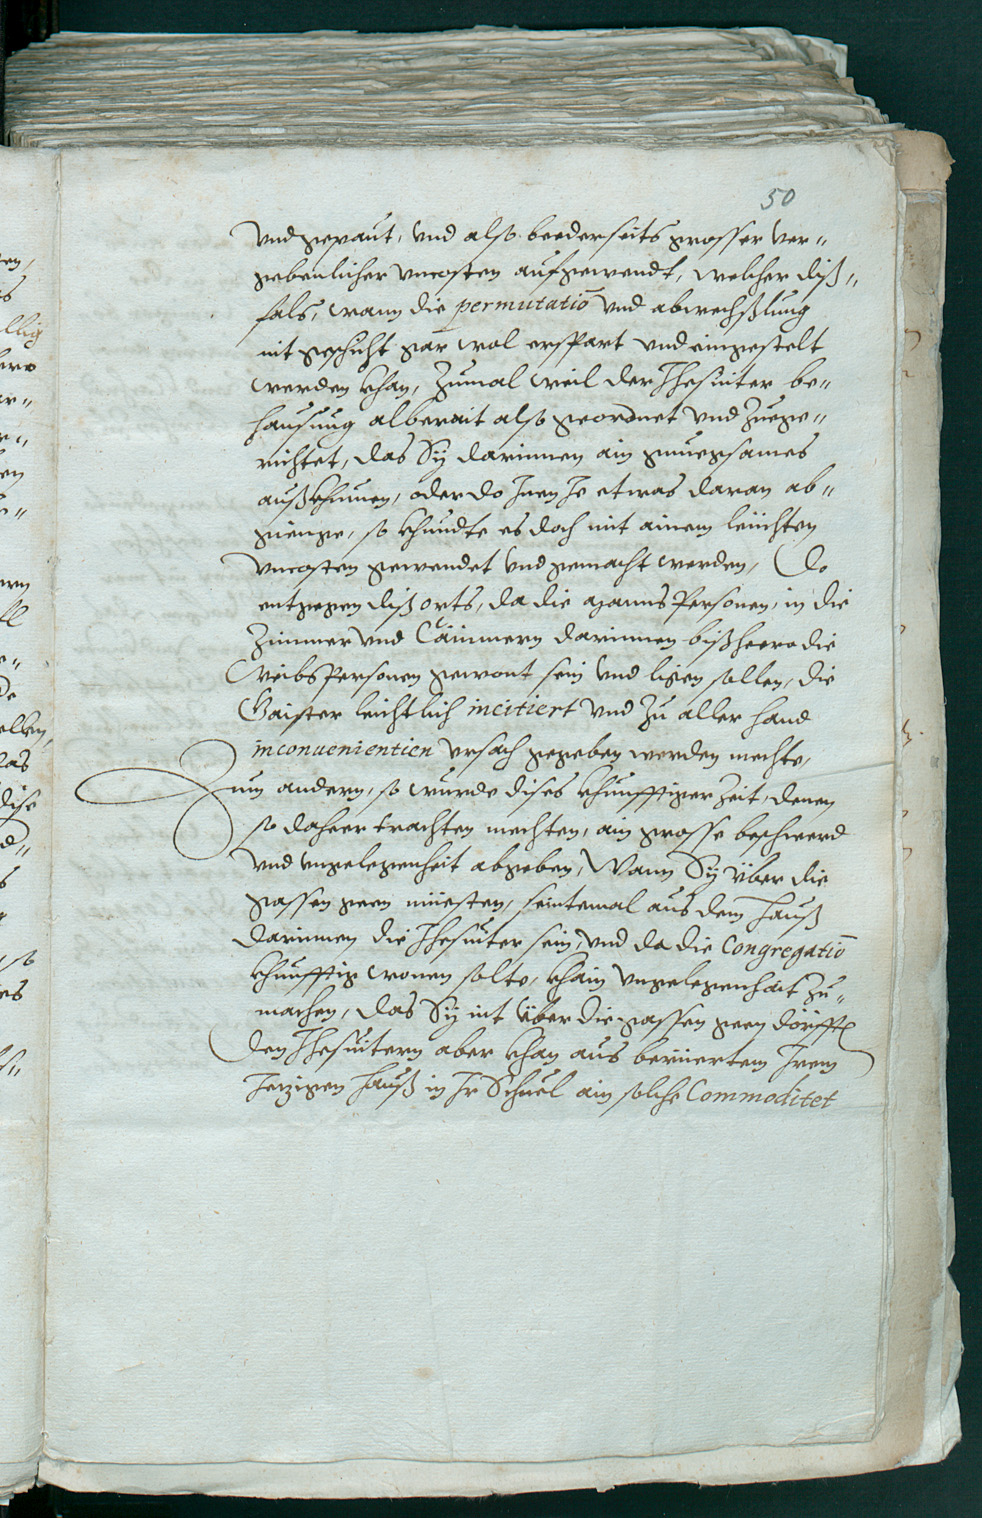 50
vnd gepaut, vnd also beederseits grosser ver¬
gebenlicher vncosten aufgewendt, welcher diß¬
fals, wann die permutatio vnd abwechßlung
nit geschicht gar wol erspart vnd eingestelt
werden khan, Zumal weil der Jhesuiter be¬
hausung alberait also geordnet vnd zuege¬
richtet, das Sÿ darinnen ain gnuegsames
außkhumen, oder do Inen Je etwas daran ab¬
gienge, so khundte es doch mit ainem leüchten
vncosten gewendet vnd gemacht werden, Do
entgegen diß orts, da die manns Personen, in die
Zimmer vnd Cämmern darinnen bißheero die
Weibs Personen gewont sein vnd ligen sollen, die
Gaister leichtlich incitiert vnd zu aller hand
inconuenientien vrsach gegeben werden mechte,
Zum andern, so wurde dises khunfftiger Zeit, denen
so daheer trachten mechten, ain grosse beschwerd
vnd vngelegenheit abgeben, Wann Sÿ über die
gassen geen müesten, seintemal aus dem hauß
darinnen die Jhesuiter sein, vnd da die Congregatio
khunfftig wonen solte, khain vngelegenhait zu¬
machen, das Sÿ nit über die gassen geen dörfft
Den Jhesuitern aber khan aus berüertem Irem
Jezigen hauß in Ir Schuel ain solche Commoditet